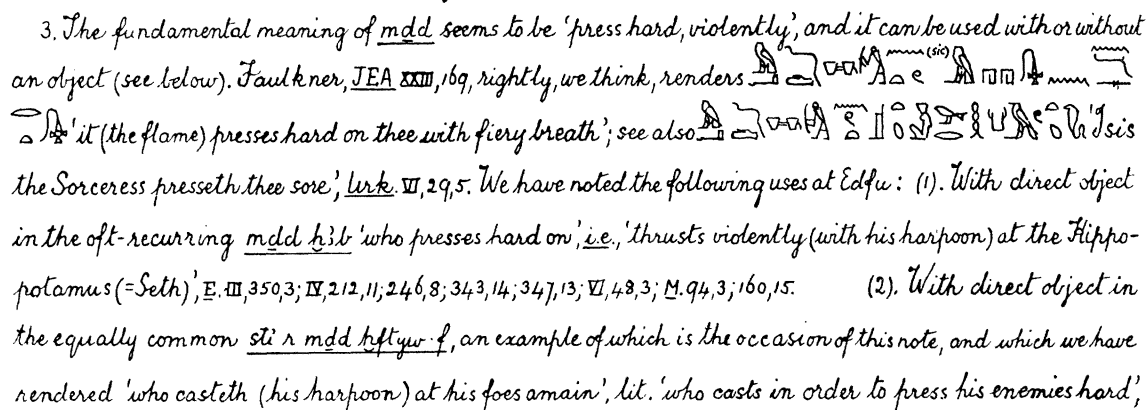 3. The fundamental meaning of mḏd seems to be 'press hard, violently', and it can be used with or without
an object (see below). Faulkner, JEA XXIII, 169, rightly, we think, renders (sic)
'it (the flame) presses hard on thee with fiery breath'; see also 'Isis
the Sorceress presseth thee sore', Urk. VI, 29, 5. We have noted the following uses at Edfu: (1). With direct object
in the oft-recurring mḏd ḫꜣb 'who presses hard on', i.e., 'thrusts violently (with his harpoon) at the Hippo-
potamus (=Seth)', E. III, 350, 3; IV, 212, 11; 246, 8; 343, 14; 347, 13; VI, 48, 3; M. 94, 3; 160, 15. (2). With direct object in
the equally common sti r mḏd ḫftyw·f, an example of which is the occasion of this note, and which we have
rendered 'who casteth (his harpoon) at his foes amain', lit. 'who casts in order to press his enemies hard',